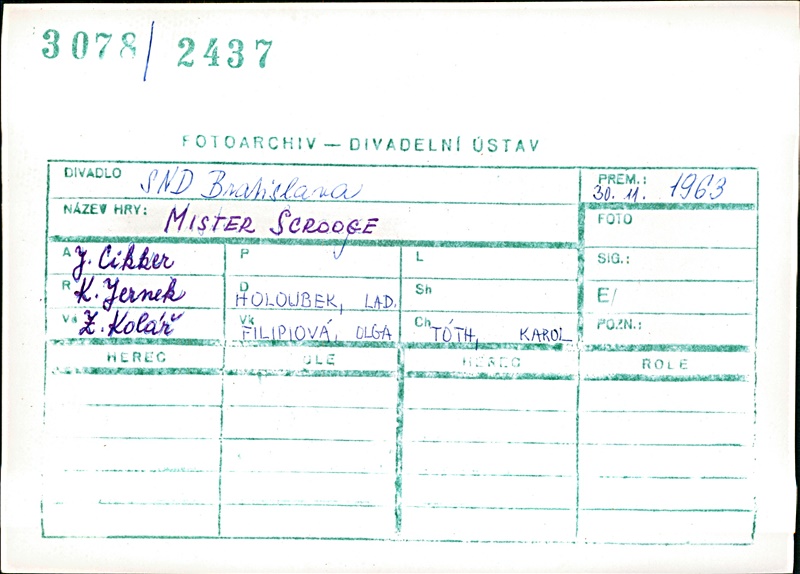 3078/2437
FOTOARCHIV — DIVADELNÍ ÚSTAV
DIVADLO SND Bratislava
PREM.: 30. 11. 1963
NÁZEV HRY: MISTER SCROOGE
FOTO
A J. Cikker P L SIG.:
R K. Jernek D HOLOUBEK, LAD. Sh E/
Vs Z. Kolář Vk FILIPIOVÁ, OLGA Ch TÓTH, KAROL POZN.:
HEREC ROLE HEREC ROLE